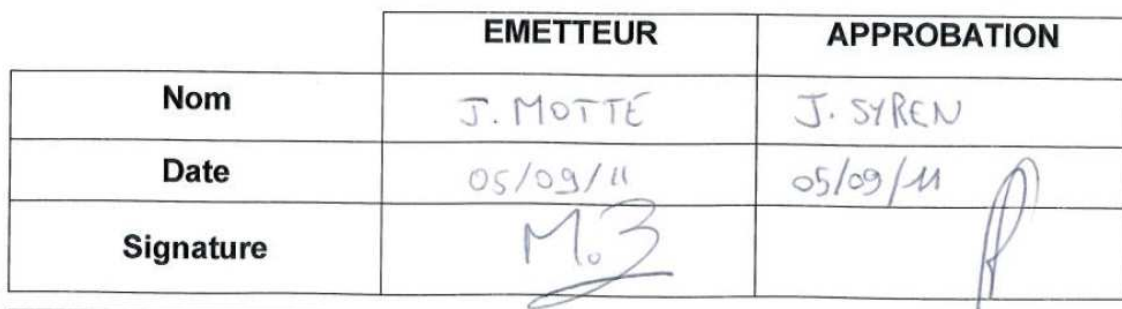 EMETTEUR APPROBATION
Nom J. MOTTE J. SYREN
Date 05/09/11 05/09/11
Signature M.3